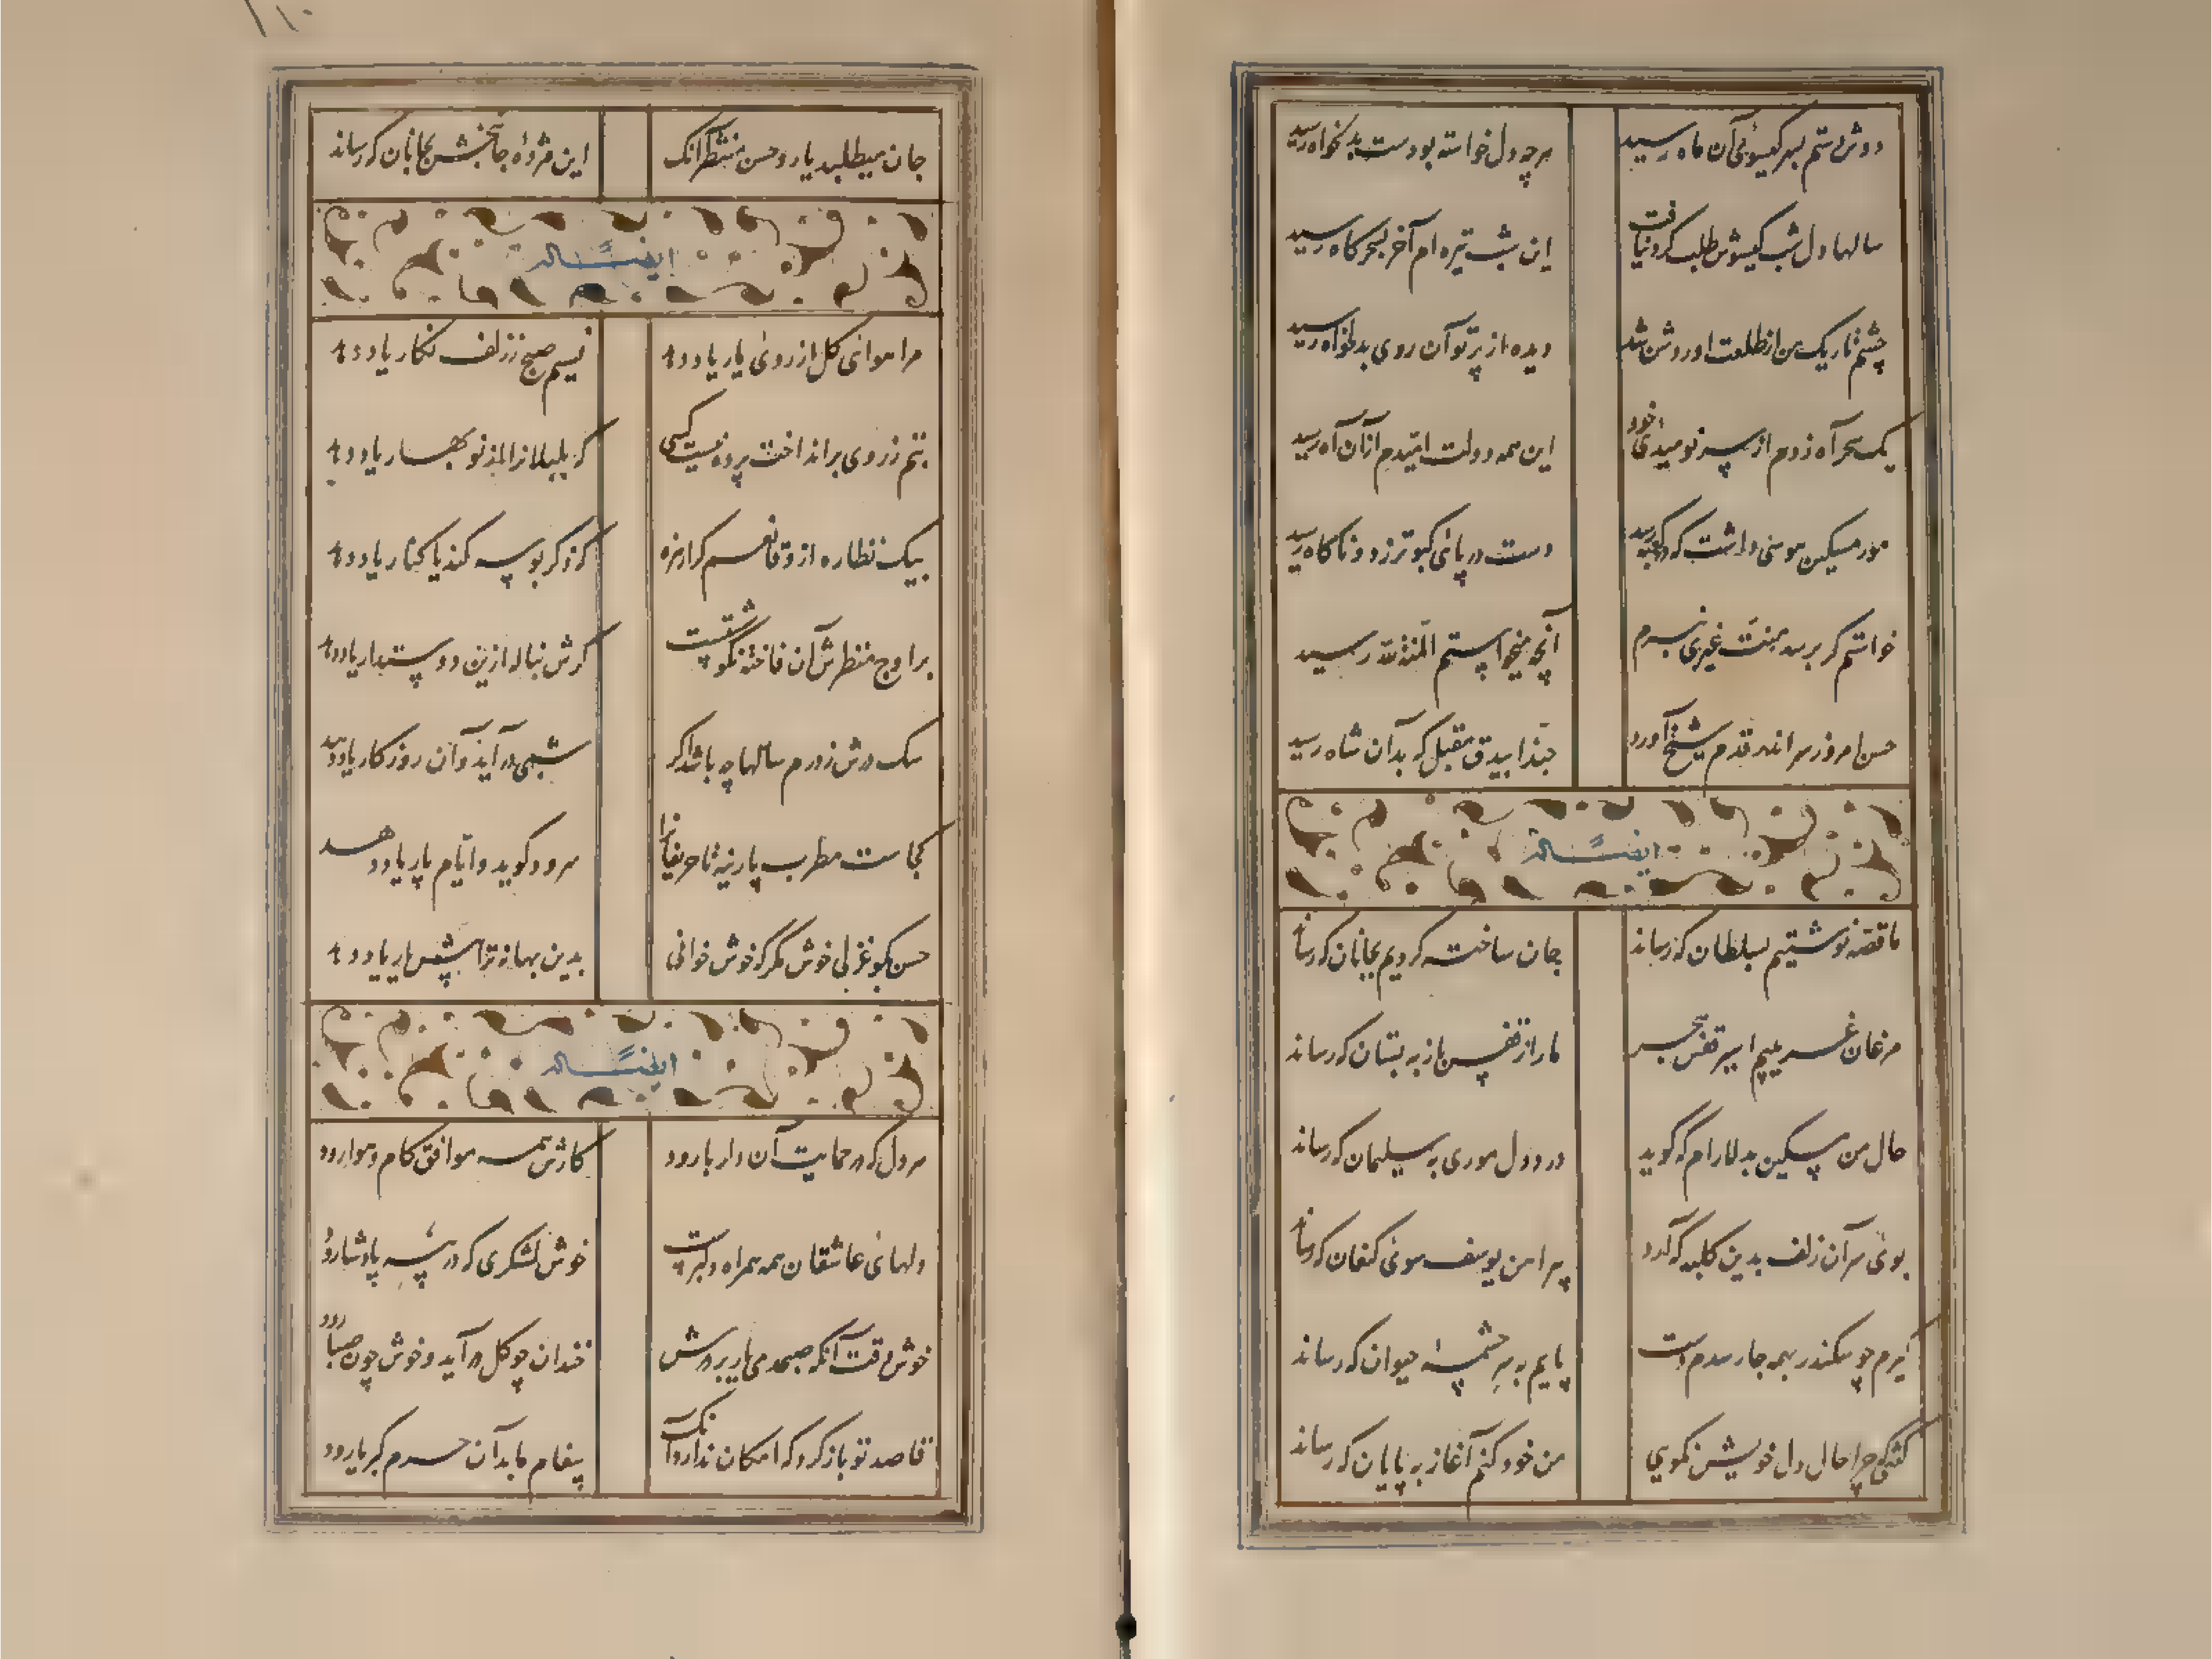 دوش دستم بسر گیسوی آن ماه رسید
هرچه دل خواسته بودست بدلخواه رسید
سالها دل شب گیسوش طلب کرد و نیافت
این شب تیره ام آخر بسحرگاه رسید
چشم تاریک من از طلعت او روشن شد
دیده از پرتو آن روی بدلخواه رسید
یک سحر آه زدم از سر نومیدی خود
این همه دولت امیدم از آن آه رسید
مور مسکین هوسی داشت که در کعبه رسد
دست در پای کبوتر زد و ناگاه رسید
خواستم کز برسد منت غیری نبرم
آنچه میخواستم المنة لله رسید
حسن امروز سر اندر قدم شیخ آورد
حبذا بیدق مقبل که بدان شاه رسید
ایضاً له
ما قصه نوشتیم بسلطان که رساند
جان ساخته کردیم بجانان که رساند
مرغان غریبیم اسیر قفس هجر
ما را ز قفس باز به بستان که رساند
حال من مسکین بدلارام که گوید
درد دل موری به سلیمان که رساند
بوی سر آن زلف بدین کلبه که آرد
پیراهن یوسف سوی کنعان که رساند
گیرم چو سکندر همه جا رسدم دست
پایم به سر چشمه حیوان که رساند
گفتی چرا حال دل خویش نگویی
من خود کنم آغاز به پایان که رساند
۱۱۰
جان میطلبد یار و حسن منتظر آنک
این مژده جانبخش بجانان که رساند
ایضاً له
مرا هوای گل از روی یار یاد دهد
نسیم صبح ز زلف نگار یاد دهد
بتم ز روی برانداخت پرده نیست کسی
که بلبلانرا از نوبهار یاد دهد
بیک نظاره ازو قانعم کرا زهره
کزو گر بوسه کند یا کنار یاد دهد
بر اوج منظرش آن فاخته نگو بنشست
کزش بناله ازین دوستدار یاد دهد
سگ درش زدرم سالها چه باشد اگر
شبی در آید و آن روزگار یاد دهد
کجاست مطرب پارینه تا حریفانرا
سرود گوید و ایام پار یاد دهد
حسن بگو غزلی خوش مگر که خوش خوانی
بدین بهانه ترا پیش یار یاد دهد
ایضاً له
هر دل که در حمایت آن دلربا رود
کارش همه موافق کام و هوا رود
دلهای عاشقان همه همراه دلبرست
خوش لشکری که در پی پادشا رود
خوش وقت آنکه صبحدمی یار بر درش
خندان چو گل در آید و خوش چون صبا رود
قاصد تو باز گرد که امکان ندارد آنک
پیغام ما بدان حرم کبریا رود